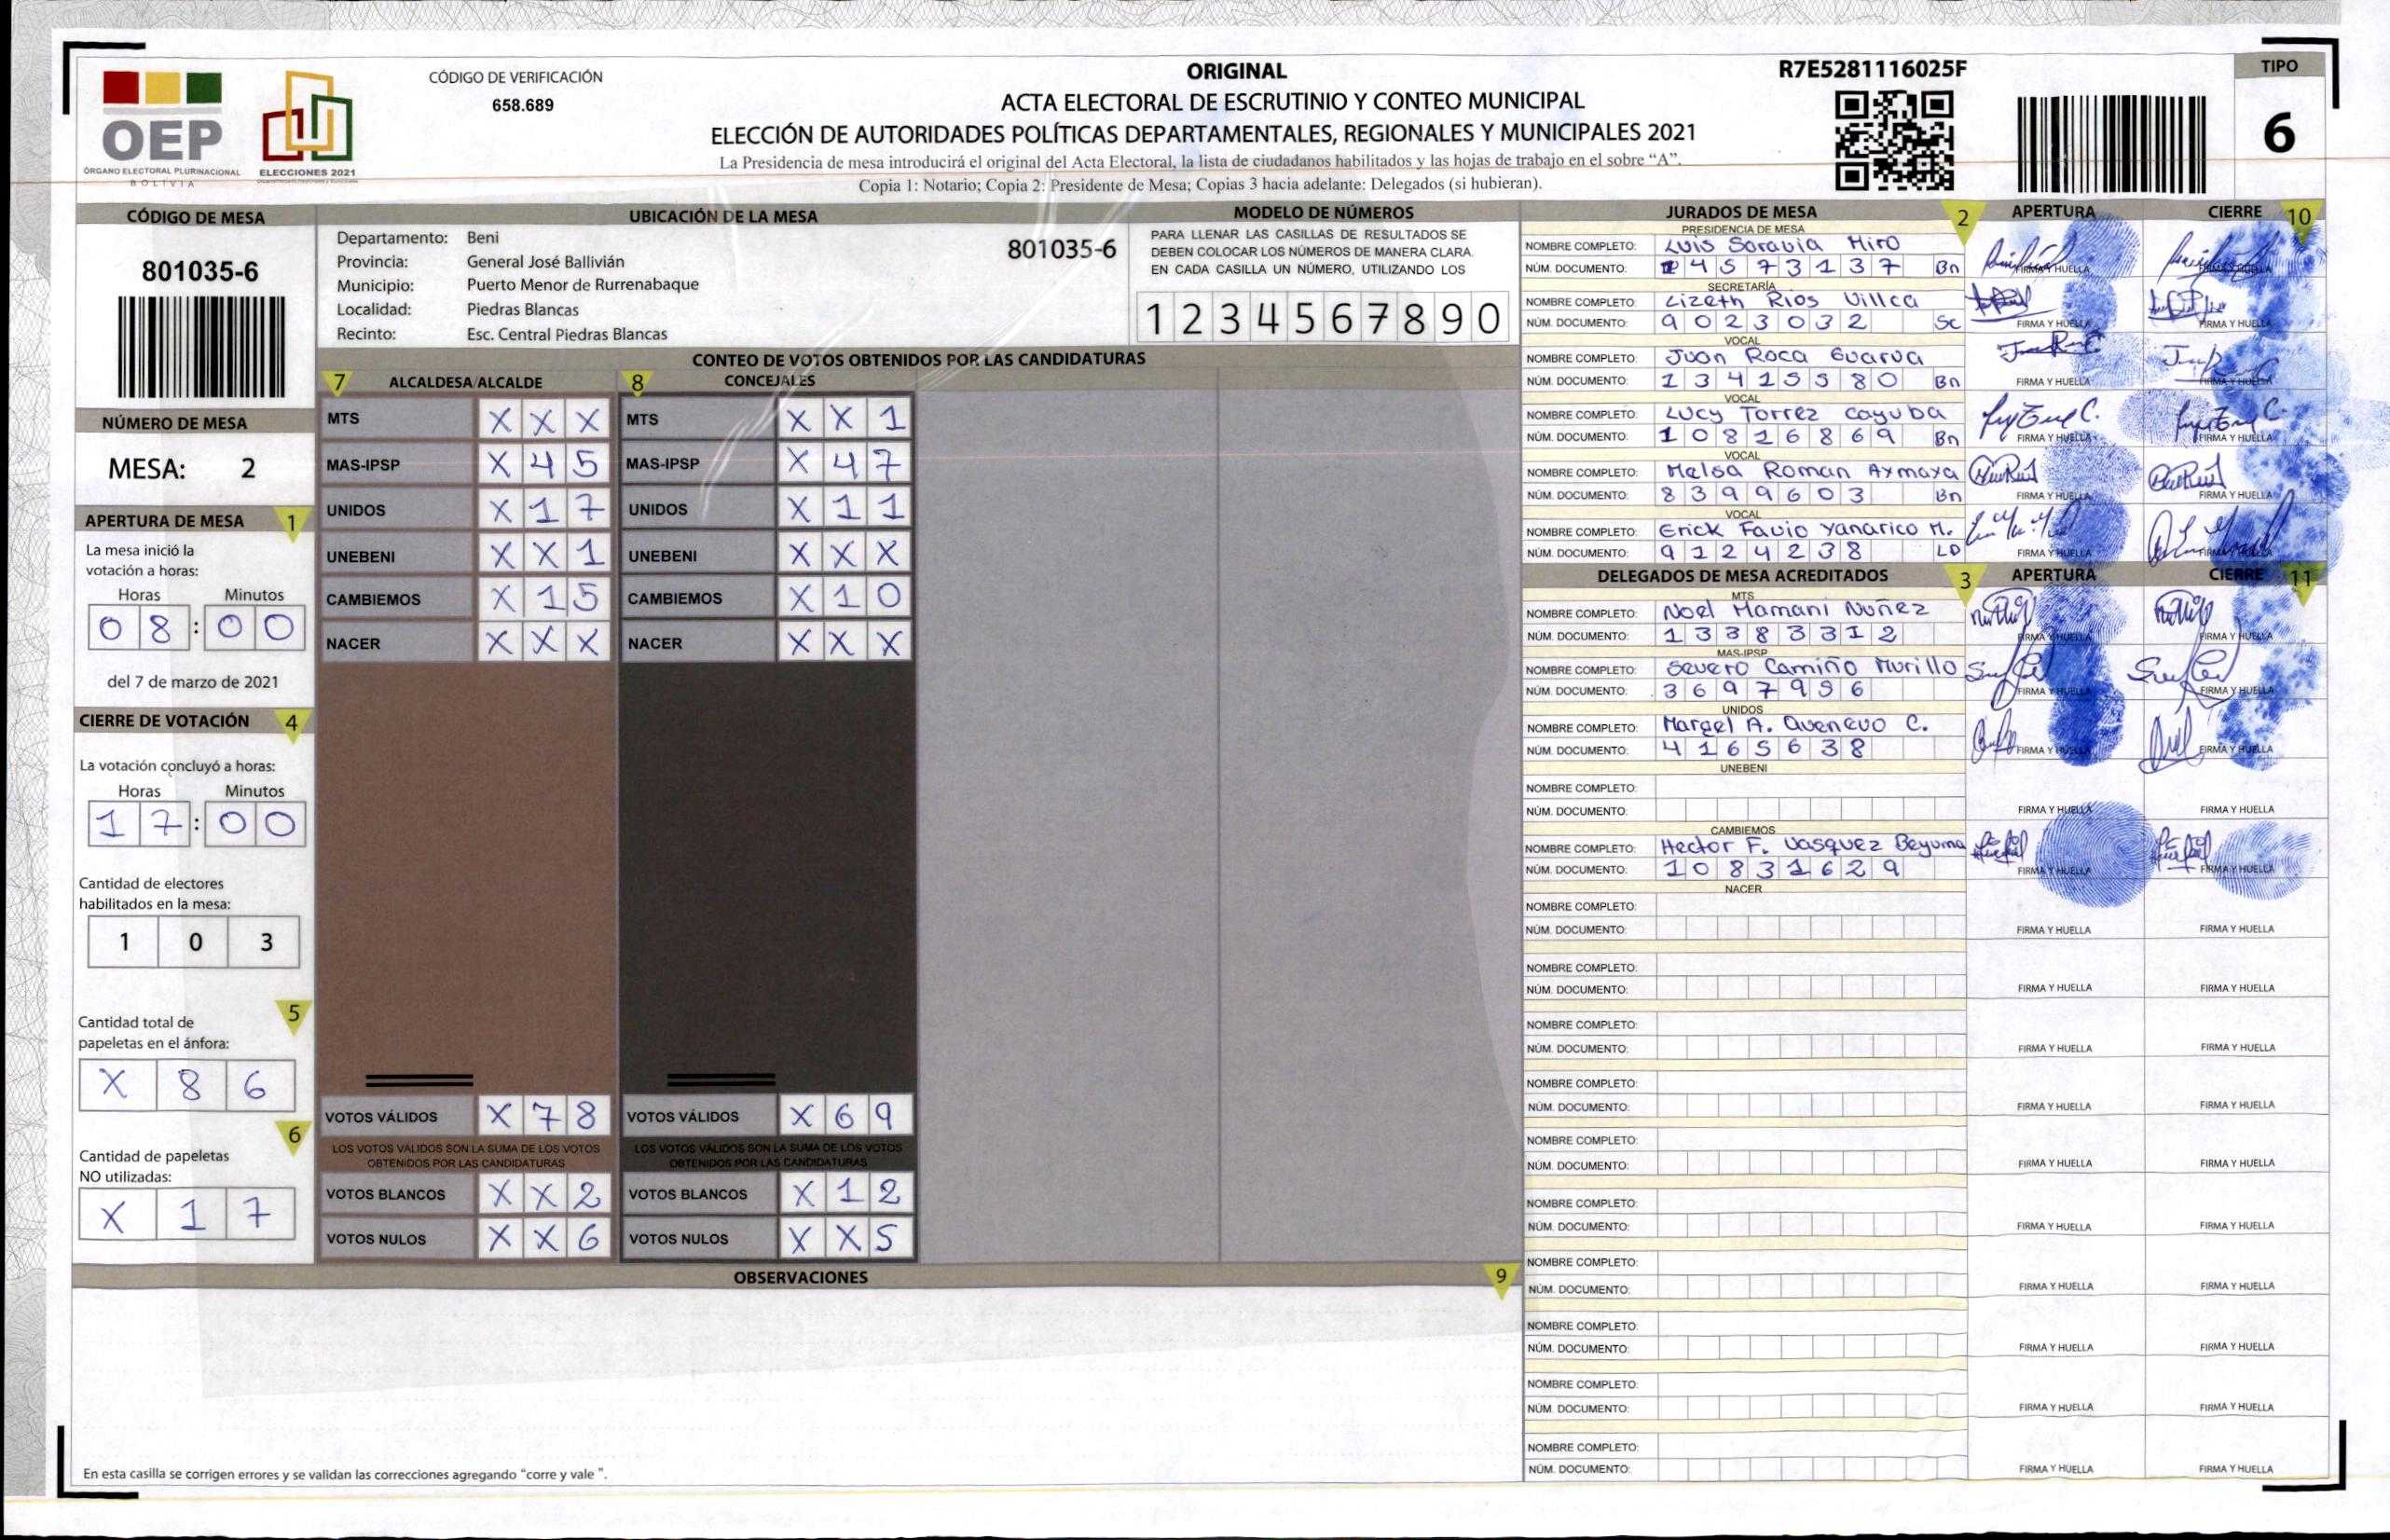 ORIGINAL
R7E5281116025F
TIPO
6
OEP
ÓRGANO ELECTORAL PLURINACIONAL
BOLIVIA
ELECCIONES 2021
CÓDIGO DE VERIFICACIÓN
658.689
ACTA ELECTORAL DE ESCRUTINIO Y CONTEO MUNICIPAL
ELECCIÓN DE AUTORIDADES POLÍTICAS DEPARTAMENTALES, REGIONALES Y MUNICIPALES 2021
La Presidencia de mesa introducirá el original del Acta Electoral, la lista de ciudadanos habilitados y las hojas de trabajo en el sobre “A”.
Copia 1: Notario; Copia 2: Presidente de Mesa; Copias 3 hacia adelante: Delegados (si hubieran).
CÓDIGO DE MESA
801035-6
NÚMERO DE MESA
MESA: 2
APERTURA DE MESA 1
La mesa inició la
votación a horas:
Horas Minutos
0 8 : 0 0
del 7 de marzo de 2021
CIERRE DE VOTACIÓN 4
La votación concluyó a horas:
Horas Minutos
1 7 : 0 0
Cantidad de electores
habilitados en la mesa:
1 0 3
5
Cantidad total de
papeletas en el ánfora:
X 8 6
6
Cantidad de papeletas
NO utilizadas:
X 1 7
UBICACIÓN DE LA MESA
Departamento: Beni
Provincia: General José Ballivián
Municipio: Puerto Menor de Rurrenabaque
Localidad: Piedras Blancas
Recinto: Esc. Central Piedras Blancas
801035-6
MODELO DE NÚMEROS
PARA LLENAR LAS CASILLAS DE RESULTADOS SE
DEBEN COLOCAR LOS NÚMEROS DE MANERA CLARA.
EN CADA CASILLA UN NÚMERO, UTILIZANDO LOS
1 2 3 4 5 6 7 8 9 0
CONTEO DE VOTOS OBTENIDOS POR LAS CANDIDATURAS
7 ALCALDESA/ALCALDE
MTS X X X
MAS-IPSP X 4 5
UNIDOS X 1 7
UNEBENI X X 1
CAMBIEMOS X 1 5
NACER X X X
VOTOS VÁLIDOS X 7 8
LOS VOTOS VÁLIDOS SON LA SUMA DE LOS VOTOS
OBTENIDOS POR LAS CANDIDATURAS
VOTOS BLANCOS X X 2
VOTOS NULOS X X 6
8 CONCEJALES
MTS X X 1
MAS-IPSP X 4 7
UNIDOS X 1 1
UNEBENI X X X
CAMBIEMOS X 1 0
NACER X X X
VOTOS VÁLIDOS X 6 9
LOS VOTOS VÁLIDOS SON LA SUMA DE LOS VOTOS
OBTENIDOS POR LAS CANDIDATURAS
VOTOS BLANCOS X 1 2
VOTOS NULOS X X 5
OBSERVACIONES 9
En esta casilla se corrigen errores y se validan las correcciones agregando “corre y vale ”.
JURADOS DE MESA 2 APERTURA CIERRE 10
PRESIDENCIA DE MESA
NOMBRE COMPLETO: Luis Saravia Miro
NÚM. DOCUMENTO: 4573137 Bn FIRMA Y HUELLA FIRMA Y HUELLA
SECRETARÍA
NOMBRE COMPLETO: Lizeth Rios Villca
NÚM. DOCUMENTO: 9023032 SC FIRMA Y HUELLA FIRMA Y HUELLA
VOCAL
NOMBRE COMPLETO: Juan Roca Guarua
NÚM. DOCUMENTO: 13415580 Bn FIRMA Y HUELLA FIRMA Y HUELLA
VOCAL
NOMBRE COMPLETO: Lucy Torrez Cayuba
NÚM. DOCUMENTO: 10816869 Bn FIRMA Y HUELLA FIRMA Y HUELLA
VOCAL
NOMBRE COMPLETO: Melsa Roman Axmaya
NÚM. DOCUMENTO: 8399603 Bn FIRMA Y HUELLA FIRMA Y HUELLA
VOCAL
NOMBRE COMPLETO: Erick Favio Yanarico M.
NÚM. DOCUMENTO: 9124238 LP FIRMA Y HUELLA FIRMA Y HUELLA
DELEGADOS DE MESA ACREDITADOS 3 APERTURA CIERRE 11
MTS
NOMBRE COMPLETO: Noel Mamani Nuñez
NÚM. DOCUMENTO: 13383312 FIRMA Y HUELLA FIRMA Y HUELLA
MAS-IPSP
NOMBRE COMPLETO: Severo Camiño Murillo
NÚM. DOCUMENTO: 3697996 FIRMA Y HUELLA FIRMA Y HUELLA
UNIDOS
NOMBRE COMPLETO: Margel A. Quenevo C.
NÚM. DOCUMENTO: 4165638 FIRMA Y HUELLA FIRMA Y HUELLA
UNEBENI
NOMBRE COMPLETO:
NÚM. DOCUMENTO: FIRMA Y HUELLA FIRMA Y HUELLA
CAMBIEMOS
NOMBRE COMPLETO: Hector F. Vasquez Beyuma
NÚM. DOCUMENTO: 10831629 FIRMA Y HUELLA FIRMA Y HUELLA
NACER
NOMBRE COMPLETO:
NÚM. DOCUMENTO: FIRMA Y HUELLA FIRMA Y HUELLA
NOMBRE COMPLETO:
NÚM. DOCUMENTO: FIRMA Y HUELLA FIRMA Y HUELLA
NOMBRE COMPLETO:
NÚM. DOCUMENTO: FIRMA Y HUELLA FIRMA Y HUELLA
NOMBRE COMPLETO:
NÚM. DOCUMENTO: FIRMA Y HUELLA FIRMA Y HUELLA
NOMBRE COMPLETO:
NÚM. DOCUMENTO: FIRMA Y HUELLA FIRMA Y HUELLA
NOMBRE COMPLETO:
NÚM. DOCUMENTO: FIRMA Y HUELLA FIRMA Y HUELLA
NOMBRE COMPLETO:
NÚM. DOCUMENTO: FIRMA Y HUELLA FIRMA Y HUELLA
NOMBRE COMPLETO:
NÚM. DOCUMENTO: FIRMA Y HUELLA FIRMA Y HUELLA
NOMBRE COMPLETO:
NÚM. DOCUMENTO: FIRMA Y HUELLA FIRMA Y HUELLA
NOMBRE COMPLETO:
NÚM. DOCUMENTO: FIRMA Y HUELLA FIRMA Y HUELLA